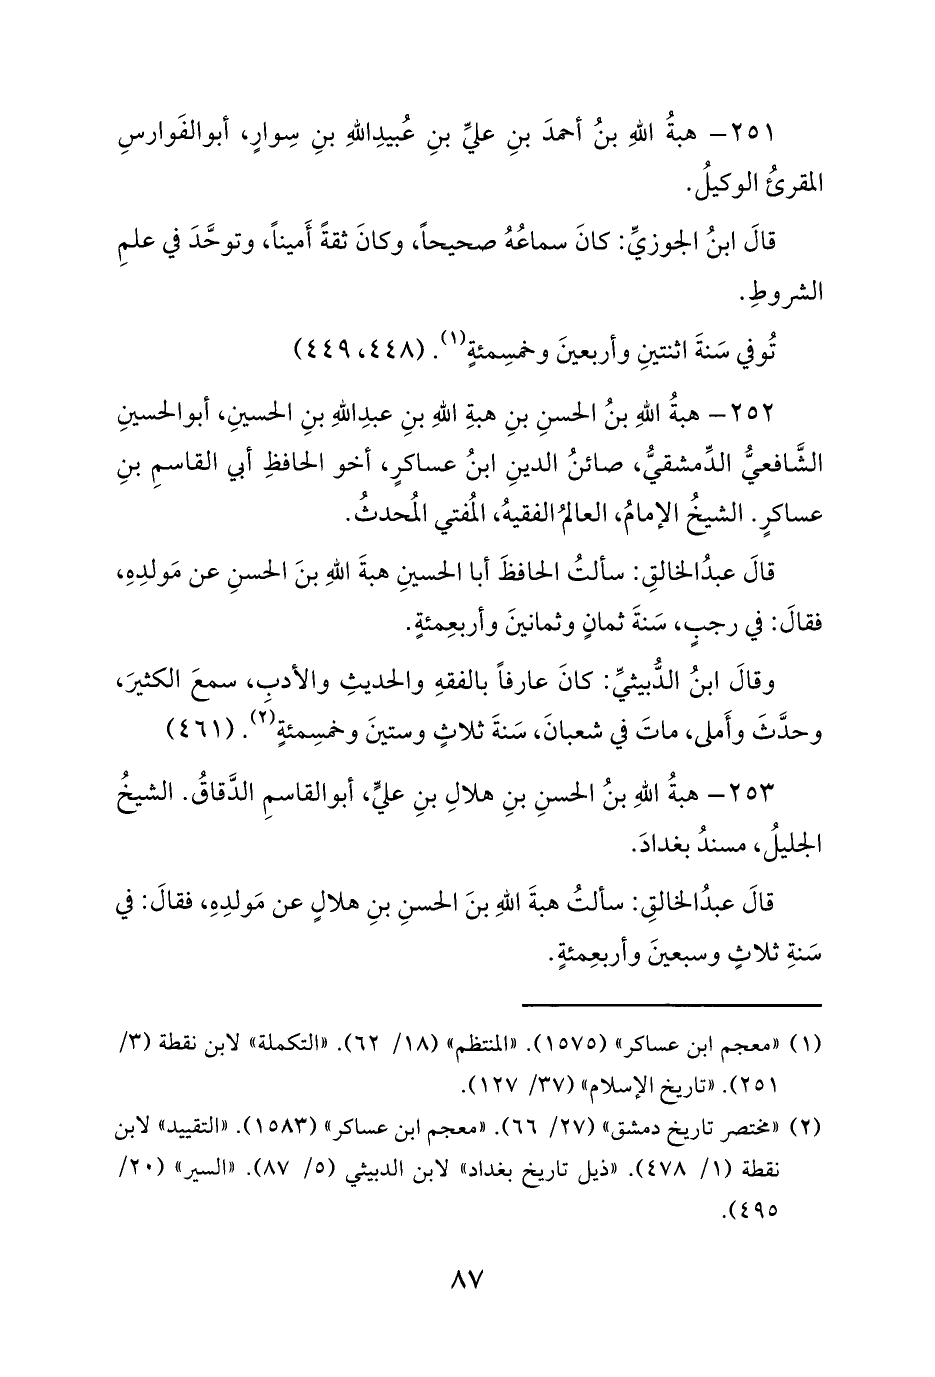 ٢٥١- هبةُ اللهِ بنُ أحمدَ بنِ عليِّ بنِ عُبيدِاللهِ بنِ سِوارٍ، أبوالفَوارسِ
المقرئُ الوكيلُ.
قالَ ابنُ الجوزيِّ: كانَ سماعُهُ صحيحاً، وكانَ ثقةً أَميناً، وتوحَّدَ في علمِ
الشروطِ.
تُوفي سَنةَ اثنتينِ وأربعينَ وخمسِمئةٍ(١). (٤٤٨، ٤٤٩)
٢٥٢- هبةُ اللهِ بنُ الحسنِ بنِ هبةِ اللهِ بنِ عبدِاللهِ بنِ الحسينِ، أبوالحسينِ
الشَّافعيُّ الدِّمشقيُّ، صائنُ الدينِ ابنُ عساكرٍ، أخو الحافظِ أبي القاسمِ بنِ
عساكرٍ. الشيخُ الإمامُ، العالمُ الفقيهُ، المُفتي المُحدثُ.
قالَ عبدُالخالقِ: سألتُ الحافظَ أبا الحسينِ هبةَ اللهِ بنَ الحسنِ عن مَولدِهِ،
فقالَ: في رجبٍ، سَنةَ ثمانٍ وثمانينَ وأربعِمئةٍ.
وقالَ ابنُ الدُّبيثيِّ: كانَ عارفاً بالفقهِ والحديثِ والأدبِ، سمعَ الكثيرَ،
وحدَّثَ وأَملى، ماتَ في شعبانَ، سَنةَ ثلاثٍ وستينَ وخمسِمئةٍ(٢). (٤٦١)
٢٥٣- هبةُ اللهِ بنُ الحسنِ بنِ هلالِ بنِ عليٍّ، أبوالقاسمِ الدَّقاقُ. الشيخُ
الجليلُ، مسندُ بغدادَ.
قالَ عبدُالخالقِ: سألتُ هبةَ اللهِ بنَ الحسنِ بنِ هلالٍ عن مَولدِهِ، فقالَ: في
سَنةِ ثلاثٍ وسبعينَ وأربعِمئةٍ.
(١) «معجم ابن عساكر» (١٥٧٥). «المنتظم» (١٨/ ٦٢). «التكملة» لابن نقطة (٣/
٢٥١). «تاريخ الإسلام» (٣٧/ ١٢٧).
(٢) «مختصر تاريخ دمشق» (٢٧/ ٦٦). «معجم ابن عساكر» (١٥٨٣). «التقييد» لابن
نقطة (١/ ٤٧٨). «ذيل تاريخ بغداد» لابن الدبيثي (٥/ ٨٧). «السير» (٢٠/
٤٩٥).
٨٧